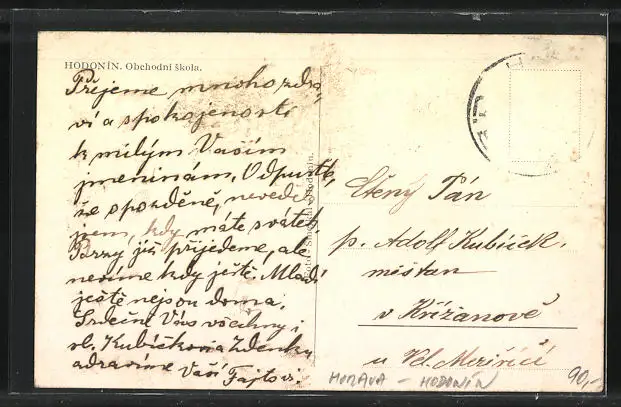 HODONÍN. Obchodní škola.
Přejeme mnoho zdra
ví a spokojenosti
k milým Vašim
jmeninám. Odpusťte,
že opozděně, nevěděli
jsem, kdy máte svátek
již přijedeme, ale
nevíme kdy ještě. Mladí
ještě nejsou doma.
Srdečně Vás všechny i
sl. Kubíčkovia Zdenku
zdravíme Vaši Fajtovi.
Ctěný Pán
p. Adolf Kubíček.
měšťan
v Křižanově
u Vel. Meziříčí
MORAVA - HODONÍN
90,-